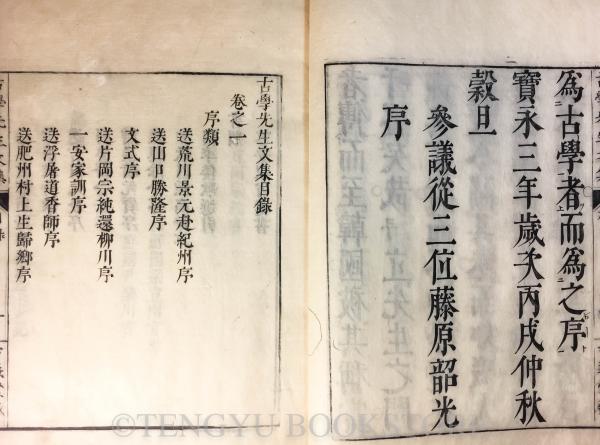 為古學者而為之序
寶永三年歲次丙戌仲秋
穀旦
參議從三位藤原韶光
序
古學先生文集目錄
卷之一
序類
送荒川景元赴紀州序
送山口勝隆序
文式序
送片岡宗純還柳川序
一安家訓序
送浮屠道香師序
送肥州村上生歸鄉序
©TENGYU BOOKSTORE